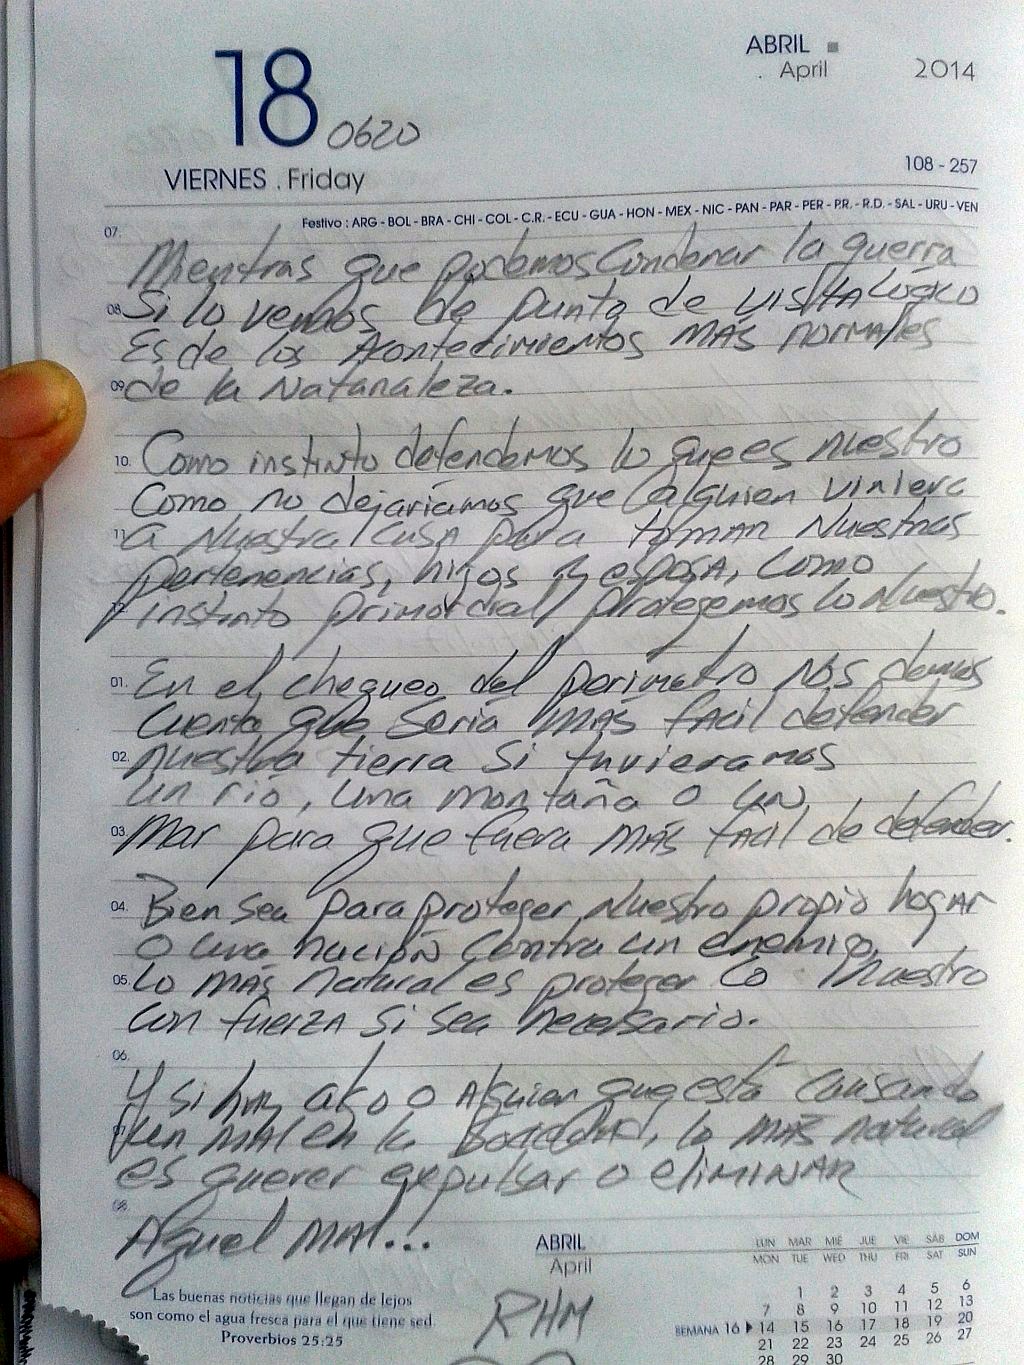 ABRIL
April 2014
18 0620
VIERNES . Friday
108 - 257
Festivo : ARG - BOL - BRA - CHI - COL - C.R. - ECU - GUA - HON - MEX - NIC - PAN - PAR - PER - P.R. - R.D. - SAL - URU - VEN
07.
Mientras que podemos Condenar la guerra
08. Si lo vemos de punto de VISTA LóGICO
Es de los Acontecimientos MAS normales
09. de la Natanaleza.
10. Como instinto defendemos lo que es nuestro
Como no dejaríamos que alguien viniera
11. a Nuestra CASA para tomAR Nuestras
pertenencias, hijos y esposA, Como
12. instinto primordial protegemos lo Nuestro.
01. En el chequeo del perimetro Nos demos
Cuenta que Seria MÁS facil defender
02. nuestra tierra Si tuvieramos
un río, una montaña o un
03. Mar para que fuera MÁS fácil de defender.
04. Bien sea para proteger Nuestro propio hogAR
o una nación Contra un enemigo,
05. Lo MÁS natural es proteger lo Nuestro
con fuerzA Si sea necesario.
06.
Y si hay algo o Alguien que está Causando
07. un MAL en la, lo MAS natural
es querer expulsar o eliMINAR
08.
Aquel MAL...
ABRIL
April
Las buenas noticias que llegan de lejos
son como el agua fresca para el que tiene sed.
Proverbios 25:25
RHM
LUN MAR MIÉ JUE VIE SÁB DOM
MON TUE WED THU FRI SAT SUN
1 2 3 4 5 6
7 8 9 10 11 12 13
SEMANA 16 14 15 16 17 18 19 20
21 22 23 24 25 26 27
28 29 30